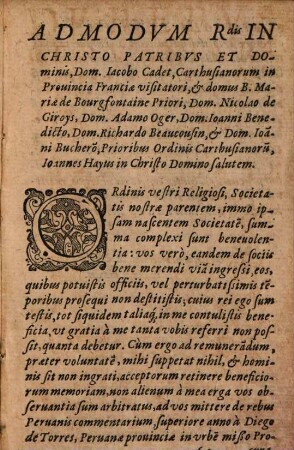 ADMODVM Rdis IN
CHRISTO PATRIBVS ET DO-
minis, Dom. Iacobo Cadet, Carthusianorum in
Prouincia Franciæ visitatori, & domus B. Ma-
riæ de Bourgfontaine Priori, Dom. Nicolao de
Giroys, Dom. Adamo Oger, Dom. Ioanni Bene-
dicto, Dom. Richardo Beaucousin, & Dom. Ioã-
ni Bucherõ, Prioribus Ordinis Carthusianorũ,
Ioannes Hayus in Christo Domino salutem.
ORdinis vestri Religiosi, Societa-
tis nostræ parentem, immò ip-
sam nascentem Societatē, sum-
ma complexi sunt beneuolen-
tia: vos verò, eandem de sociis
bene merendi viã ingressi, eos,
quibus potuistis officiis, vel perturbatissimis tē-
poribus prosequi non destitistis, cuius rei ego sum
testis, tot siquidem taliaq́, in me contulistis bene-
ficia, vt gratia à me tanta vobis referri non pos-
sit, quanta debetur. Cum ergo ad remunerãdum,
præter voluntatē, mihi suppetat nihil, & homi-
nis sit non ingrati, acceptorum retinere beneficio-
rum memoriam, non alienum à mea erga vos ob-
seruantia sum arbitratus, ad vos mittere de rebus
Peruanis commentarium, superiore anno à Diego
de Torres, Peruanæ prouinciæ in vrbē misso Pro-